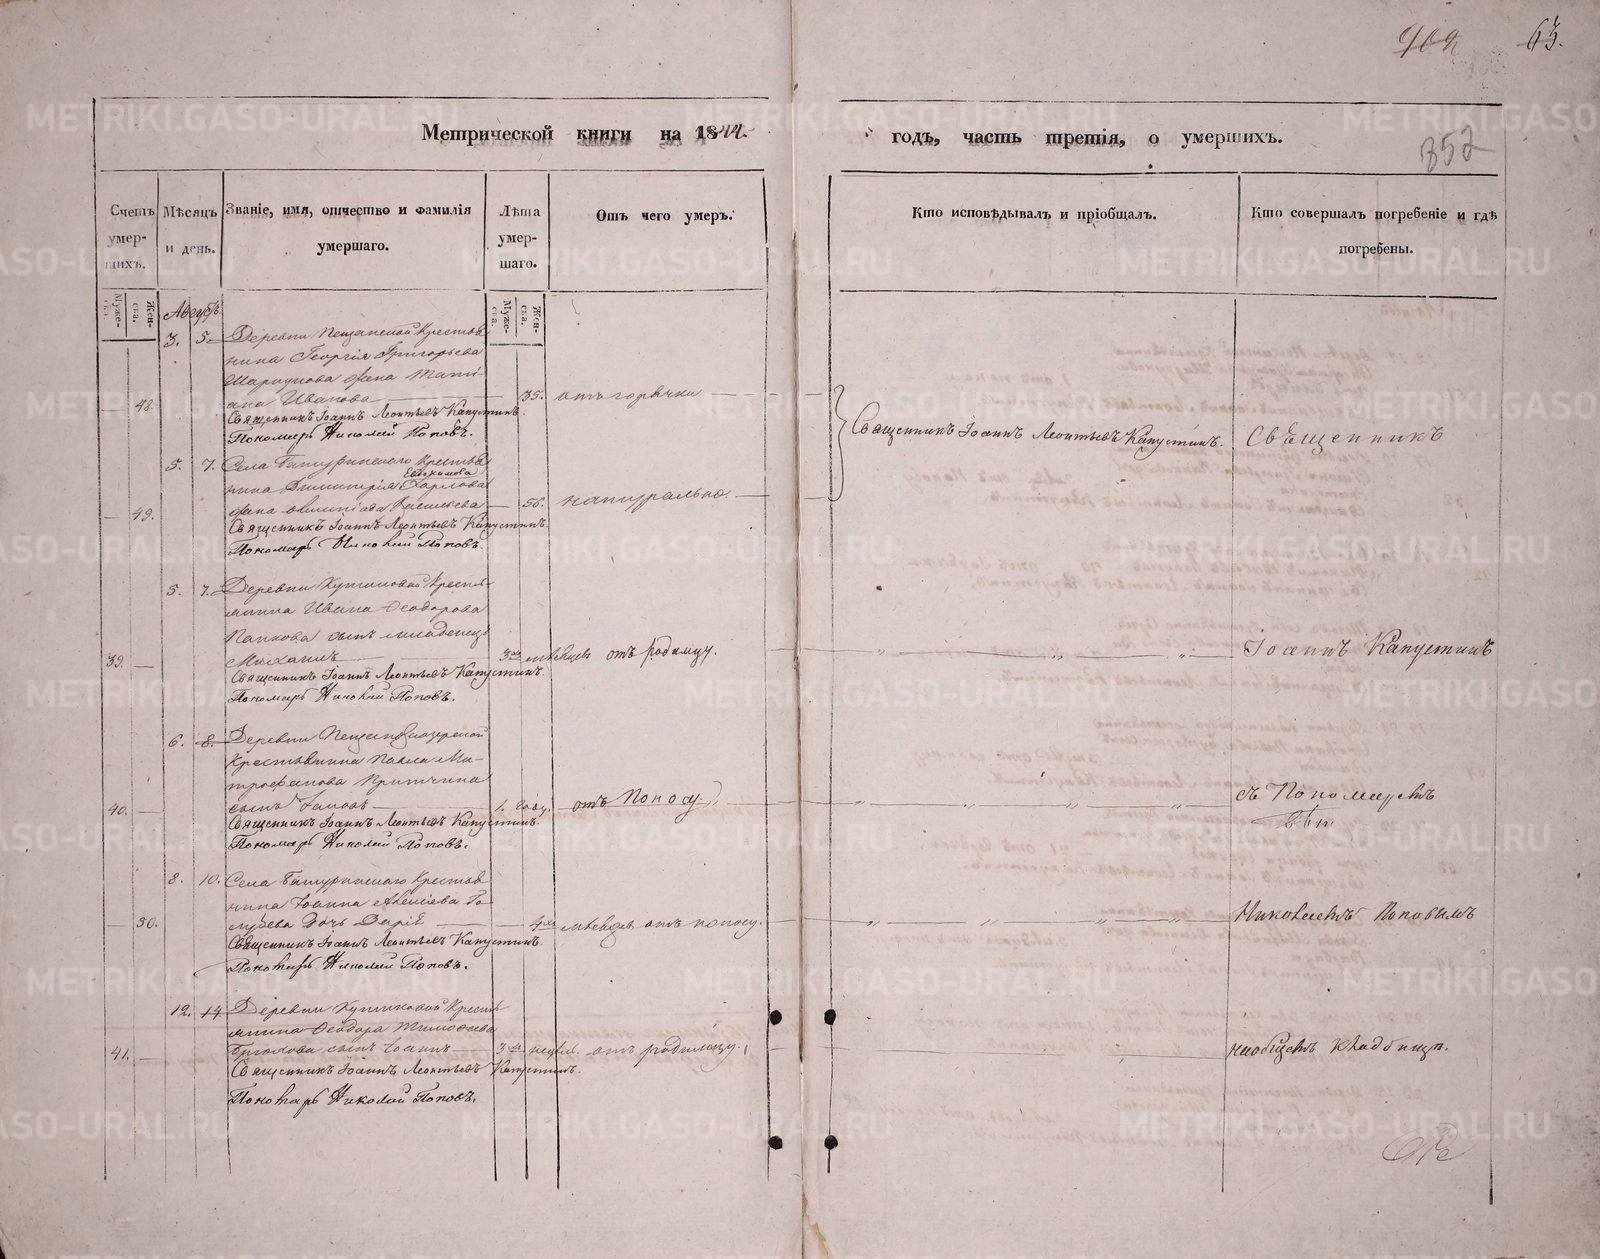 63.
352
Метрической книги на 1844. годъ, часть третія, о умершихъ.
Счетъ умершихъ.
Мужеска.
Женска.
Мѣсяцъ и день.
Званіе, имя, отчество и фамилія умершаго.
Лѣта умершаго.
Мужеска.
Женска.
Отъ чего умеръ.
Кто исповѣдывалъ и пріобщалъ.
Кто совершалъ погребеніе и гдѣ погребены.
3. 5. Деревни Пещанской Крестья
нина Георгія Григорьева
жена Тати
48. ана Иванова 35. отъ горячки
Священникъ Іоаннъ Леонтьевъ Капустинъ.
Пономарь Николай Поповъ.
Священникъ Іоаннъ Леонтьевъ Капустинъ.
Священникъ
5. 7. Села Батуринского Крестья
Евдокимова
нина Димитрія Харлова
49. жена Васильева 56. натурально.
Священникъ Іоаннъ Леонтьевъ Капустинъ.
Пономарь Николай Поповъ.
5. 7. Деревни Крестья
нина Ивана Ѳеодорова
Папкова сынъ младенецъ
39. Михаилъ 3хъ мѣсяцъ отъ родимцу.
Іоаннъ Капустинъ
Священникъ Іоаннъ Леонтьевъ Капустинъ.
Пономарь Николай Поповъ.
6. 8. Деревни
Крестьянина Павла Ми
трофанова Притчина
40. сынъ 1. году. отъ Поносу.
съ Пономаремъ
Священникъ Іоаннъ Леонтьевъ Капустинъ.
Пономарь Николай Поповъ.
8. 10. Села Батуринского Крестья
нина Іоанна Алексіева Го
50. лубева дочь Дарія 4хъ мѣсяцъ отъ поносу.
Николаемъ Поповымъ
Священникъ Іоаннъ Леонтьевъ Капустинъ.
Пономарь Николай Поповъ.
12. 14 Деревни Крестья
нина Ѳеодора Тимоѳеева
41. Брюхова сынъ Іоаннъ 3хъ недѣль отъ родимцу.
на общемъ кладбищѣ.
Священникъ Іоаннъ Леонтьевъ Капустинъ.
Пономарь Николай Поповъ.
METRIKI.GASO-URAL.RU